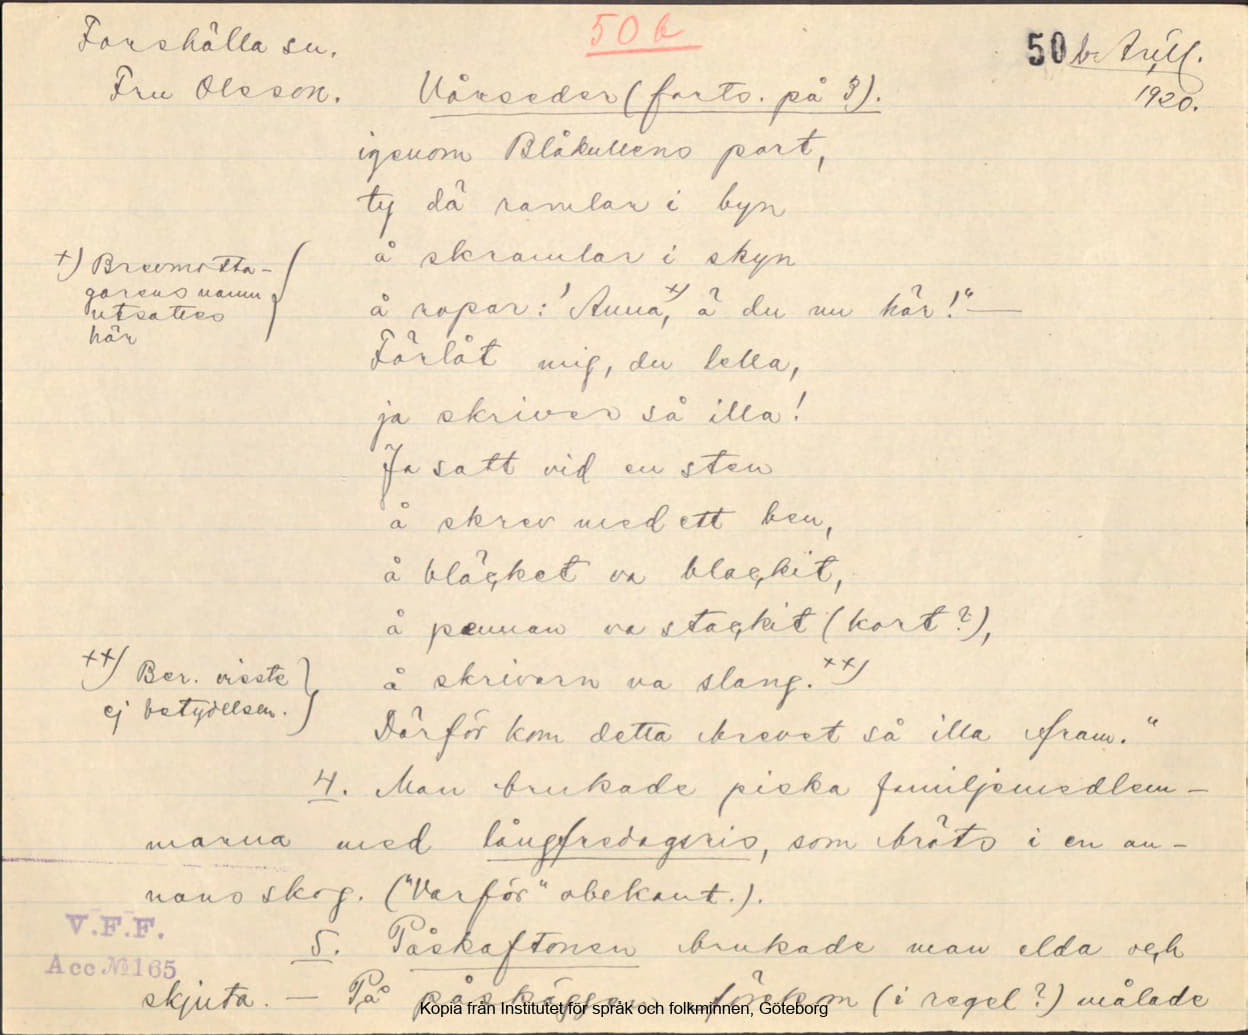 Forshälla sn.
Fru Olsson.
50 b
50 b Arill.
1920.
Vårseder (forts. på 3).
igenom Blåkullens port,
ty dä ramlar i byn
å skramlar i skyn
+) Brevmotta-
garens namn
utsattes
här
å ropar: "Anna +), ä du nu här!" —
Förlåt mig, du lella,
ja skriver så illa!
Ja satt vid en sten
å skrev med ett ben,
å bläcket va blackit,
å pennan va stackit (kort?),
++) Ber. visste
ej betydelsen.
å skrivarn va slang. ++)
Därför kom detta brevet så illa fram."
4. Man brukade piska familjemedlem-
marna med långfredagsris, som bröts i en an-
nans skog. ("Varför" obekant.).
V.F.F.
Acc № 165
5. Påskaftonen brukade man elda och
skjuta. — På påskäggen förekom (i regel?) målade
Kopia från Institutet för språk och folkminnen, Göteborg